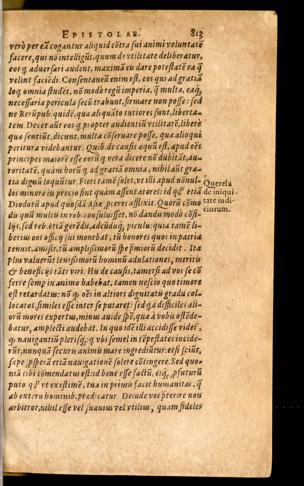 EPISTOLAE. 813
verò per eā cogantur aliquid cōtra sui animi voluntatē
facere, qui nō intelligūt, quum de vtilitate deliberatur,
eos q; aduersari audent, maximā eis dare potestatē ea q̄
velint faciēdi. Consentaneū enim est, eos qui ad gratiā
loq; omnia studēt, nō modò regū imperia, q̄ multa, eaq;
necessaria pericula secū trubunt, firmare non posse: sed
ne Rerūpub. quidē, qua aliquāto tutiores sunt, liberta-
tem. Decet aūt eos q; propter audientiū vtilitatē, liberè
quae sentiūt, dicunt, multa cōseruare posse, quae alioqui
peritura videbantur. Quib. de causis aequū est, apud oēs
principes maiorē esse eorū q; vera dicere nō dubitāt, au-
toritatē, quàm horū q; ad gratiā omnia, nihil aūt gra-
tia dignū loquūtur.
los minore in precio sint quàm assentatores: id q;
Diodotū apud quosdā Asiae
du quū multi in reb. consuluisset, nō dandū modò cōsi-
lijs, sed reb. etiā gerēdis, adeūdisq; piculis: quia tamē li-
berius eos officij sui monebat, tū honores quos in patria
tenuit, amisit, tū amplissimorū spe praemiorū decidit. Ita
plus valuerūt leuissimorū hominū adulationes, meritis
& beneficijs tāti viri. Hu de causis, tametsi ad vos se cō
ferre semp in animo habebat, tamen nescio quo timore
est retardatus: nō q; oēs in altiori dignitatis gradu col-
locatos, similes esse inter se putaret: sed q; à difficiles ali-
orū mores expertus, minus auide spē, quae à vobis ostēde-
batur, amplecti audebat. In quo idē illi accidisse videt',
q; nauigantiū plerisq; q; vbi semel in tēpestates incide-
rūt, nunquā securi animi mare ingrediūtur: etsi sciūt,
saepe prosperā etiā nauigationē solere cōtingere. Sed quo-
niā tibi cōmendatus est: id bene esse factū, eiq; profuturū
puto
ab exteris hominib. praedicatur. Deinde vos praeterire non
arbitror, nihil esse vel suauius vel vtilius, quàm fideles
Querela
de iniqui-
tate iudi-
ciorum.